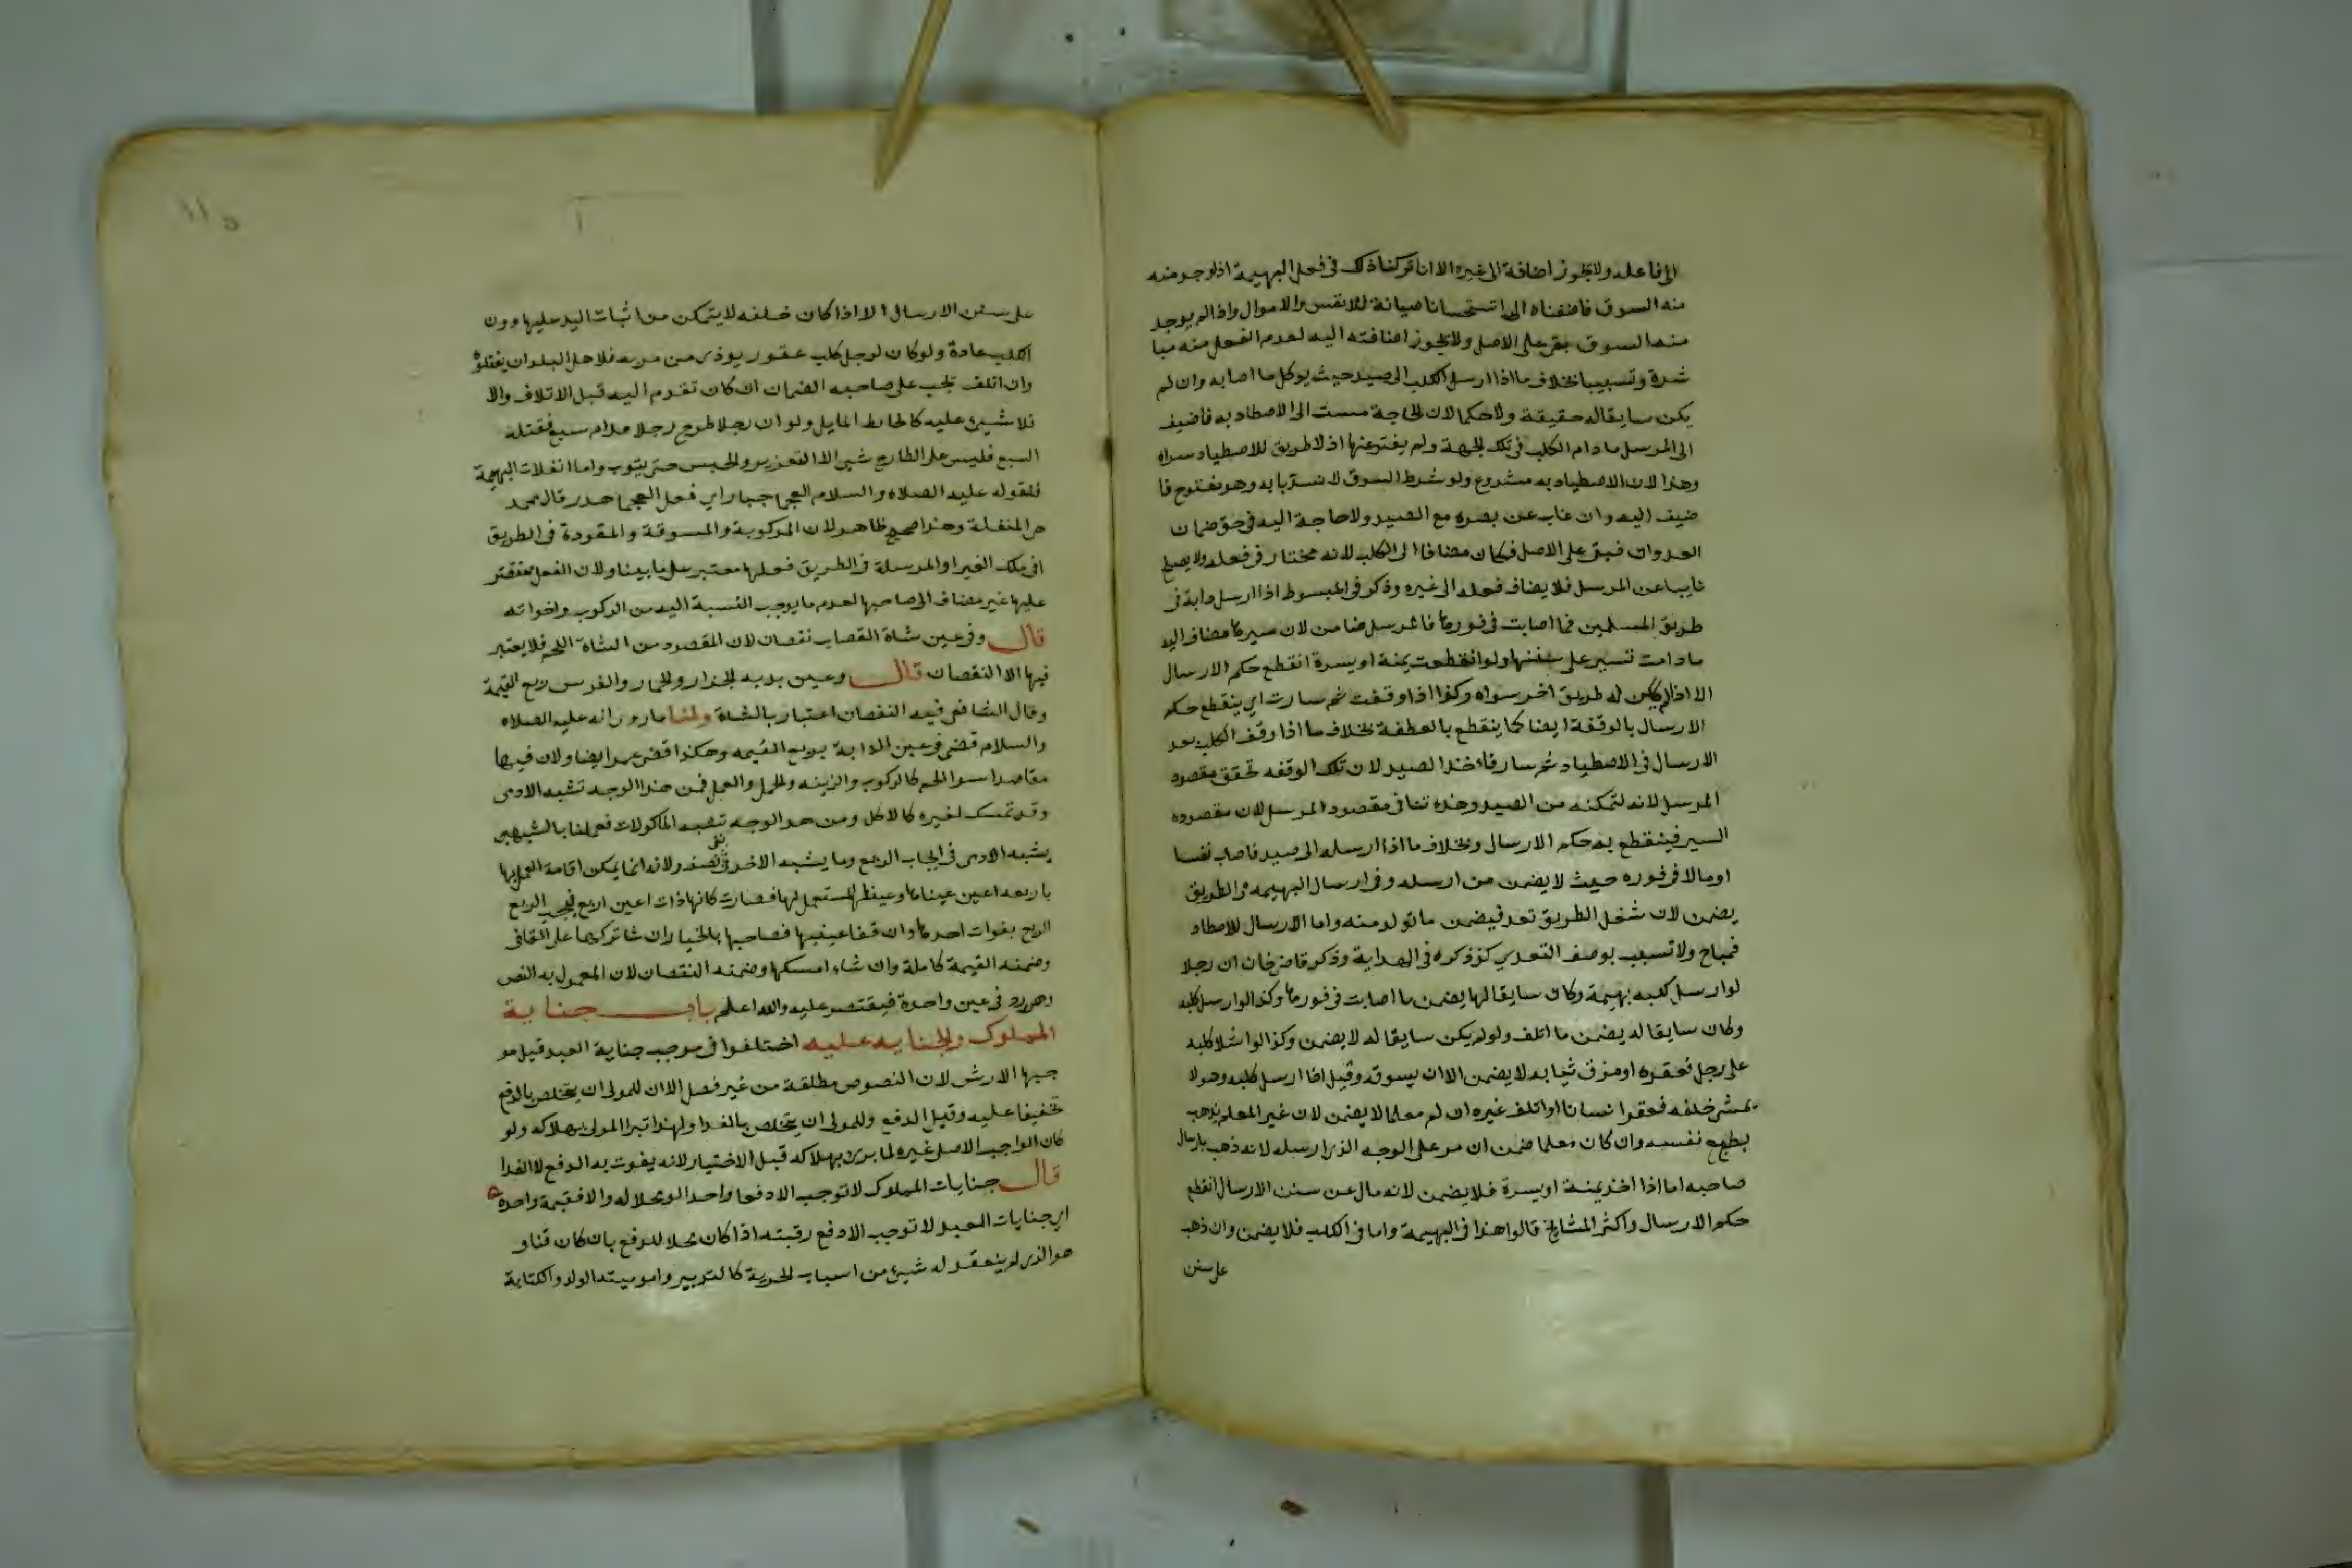 الى فاعله ولا تجوز اضافة الى غيره الا انا تركنا ذلك في فعل البهيمة اذا وجد منه
منه السوق فاضفناه الى استحسانا صيانة للانفس والاموال واذا لم يوجد
منه السوق بقى على الاصل ولا تجوز اضافته اليه لعدم الفعل منه مبا
شرة وتسبيبا بخلاف ما اذا ارسل الكلب الى صيد حيث يوكل ما اصابه وان لم
يكن سايقا له حقيقة ولا حكما لان الحاجة مست الى الاصطياد به فاضيف
الى المرسل ما دام الكلب في تلك الجهة ولم يفتر عنها اذ لا طريق للاصطياد سواه
وهذا لان الاصطياد به مشروع ولو شرط السوق لانسد بابه وهو مفتوح فا
ضيف اليه وان غاب عن بصره مع الصيد ولا حاجة اليه في حق ضمان
العدوان فبقى على الاصل فكان مضافا الى الكلب لانه مختار في فعله ولا يصلح
نايبا عن المرسل فلا يضاف فعله الى غيره وذكر في المبسوط اذا ارسل دابة في
طريق المسلمين فما اصابت في فورها فالمرسل ضامن لان سيرها مضاف اليه
ما دامت تسير على سننها ولو انعطفت يمنة او يسرة انقطع حكم الارسال
الا اذا لم يكن له طريق اخر سواه وكذا اذا وقفت ثم سارت اي ينقطع حكم
الارسال بالوقفة ايضا كما ينقطع بالعطفة بخلاف ما اذا وقف الكلب بعد
الارسال في الاصطياد ثم سار فاخذ الصيد لان تلك الوقفه تحقق مقصود
المرسل لانه لتمكنه من الصيد وهذه تنافى مقصود المرسل لان مقصوده
السير فينقطع به حكم الارسال وبخلاف ما اذا ارسله الى صيد فاصاب نفسا
او مالا في فوره حيث لا يضمن من ارسله وفي ارسال البهيمه في الطريق
يضمن لان شغل الطريق تعد فيضمن ما تولد منه واما الارسال للاصطياد
فمباح ولا تسبيب بوصف التعدي كذا ذكره في الهداية وذكر قاضي خان ان رجلا
لو ارسل كلبه بهيمة وكان سايقا لها يضمن ما اصابت في فورها وكذا لو ارسل كلبه
وكان سايقا له يضمن ما اتلف ولو لم يكن سايقا له لا يضمن وكذا لو اشلا كلبه
على رجل فعقره او مزق ثيابه لا يضمن الا ان يسوقه وقيل اذا ارسل كلبه وهو لا
يمشي خلفه فعقر انسانا او اتلف غيره ان لم معلما لا يضمن لان غير المعلم يذهب
بطبع نفسه وان كان معلما ضمن ان مر على الوجه الذي ارسله لانه ذهب بارسال
صاحبه اما اذا اخذ يمنة او يسرة فلا يضمن لانه مال عن سنن الارسال انقطع
حكم الارسال واكثر المشايخ قالوا هذا في البهيمة واما في الكلب فلا يضمن وان ذهب
على سنن
١١٥
على سنن الارسال الا اذا كان خلفه لا يتمكن من اثبات اليد عليها دون
الكلب عادة ولو كان لرجل كلب عقور يوذى من مر به فلاهل البلد ان يقتلوه
وان اتلف تجب على صاحبه الضمان ان كان تقدم اليه قبل الاتلاف والا
فلا شيئ عليه كالحايط المايل ولو ان رجلا طرح رجلا قدام سبع فقتله
السبع فليس على الطارح شي الا التعزير والحبس حتى يتوب واما انفلات البهيمة
فلقوله عليه الصلاه والسلام العجما جبار اي فعل العجما هدر قال محمد
هي المنفلتة وهذا صحيح ظاهر لان المركوبة والمسوقة والمقودة في الطريق
او في ملك الغير او المرسلة في الطريق فعلها معتبر على ما بينا ولان الفعل مقتصر
عليها غير مضاف الى صاحبها لعدم ما يوجب النسبة اليه من الركوب واخواته
قال وفي عين شاة القصاب نقصان لان المقصود من الشاة اللحم فلا يعتبر
فيها الا النقصان قال وعين بدنه الجزار والحمار والفرس ربع القيمة
وقال الشافعي فيه النقصان اعتبار بالشاة ولنا ما روى انه عليه الصلاه
والسلام قضى في عين الدابة بربع القيمه وهكذا قضى عمر ايضا ولان فيها
مقاصد اسوا اللحم كالركوب والزينه والحمل والعمل فمن هذا الوجه تشبه الادمى
وقد تمسك لغيره كالاكل ومن هذا الوجه تشبه الماكولات فعملنا بالشبهين
بشبه الادمى في ايجاب الربع وما يشبه الاخر في نفى نصف ولانه انما يمكن اقامة العمل بها
باربعه اعين عيناها وعينا المستعمل لها فصارت كانها ذات اعين اربع فيجب الربع
الربع بفوات احدها وان فقا عينيها فصاحبها بالخيار ان شا تركها على الفاقى
وضمنه القيمة كاملة وان شاء امسكها وضمنه النقصان لان المعمول به النص
وهو ورد في عين واحدة فيقتصر عليه والله اعلم باب جناية
المملوك والجنايه عليه اختلفوا في موجب جناية العبد قيل مو
جبها الارش لان النصوص مطلقة من غير فصل الا ان للمولى ان يتخلص بالدفع
تخفيفا عليه وقيل الدفع وللمولى ان يتخلص بالفدا ولهذا تبرا المولى بهلاكه ولو
كان الواجب الاصلى غيره لما برئ بهلاكه قبل الاختيار لانه يفوت به الدفع لا الفدا
قال جنايات المملوك لا توجب الا دفعا واحدا لو محلا له والا قيمة واحدة
اي جنايات العبيد لا توجب الا دفع رقبته اذا كان محلا للدفع بان كان قنا و
هو الذي لم ينعقد له شيئ من اسباب الحرية كالتدبير واموميته الولد والكتابة